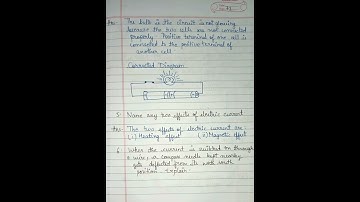 Ans: The bulb in the circuit is not glowing
because the two cells are not connected
properly. Positive terminal of one cell is
connected to the positive terminal of
another cell
Corrected Diagram
5. Name any two effects of electric current
Ans- The two effects of electric current are
(i) Heating effect (ii) Magnetic effect
6 When the current is switched on through
a wire, a compass needle kept nearby
gets deflected from its north south
position. Explain